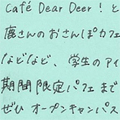 Café Dear Deer！と
鹿さんのおさんぽカフェ
などなど、学生のアイ
期間限定パフェまで
ぜひ オープンキャンパス